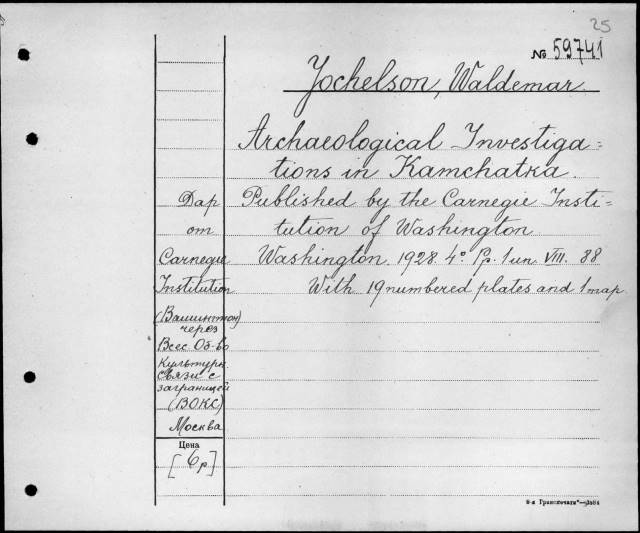 25
№ 59741
Jochelson, Waldemar.
Archaeological Investiga=
tions in Kamchatka.
Published by the Carnegie Insti=
tution of Washington
Washington. 1928. 4° Pp. 1 un. VIII. 88
With 19 numbered plates and 1 map.
Дар
от
Carnegie
Institution
(Вашингтон)
через
Всес. Об-во
Культурн.
Связи с
заграницей
(ВОКС)
Москва
Цена
[6р]